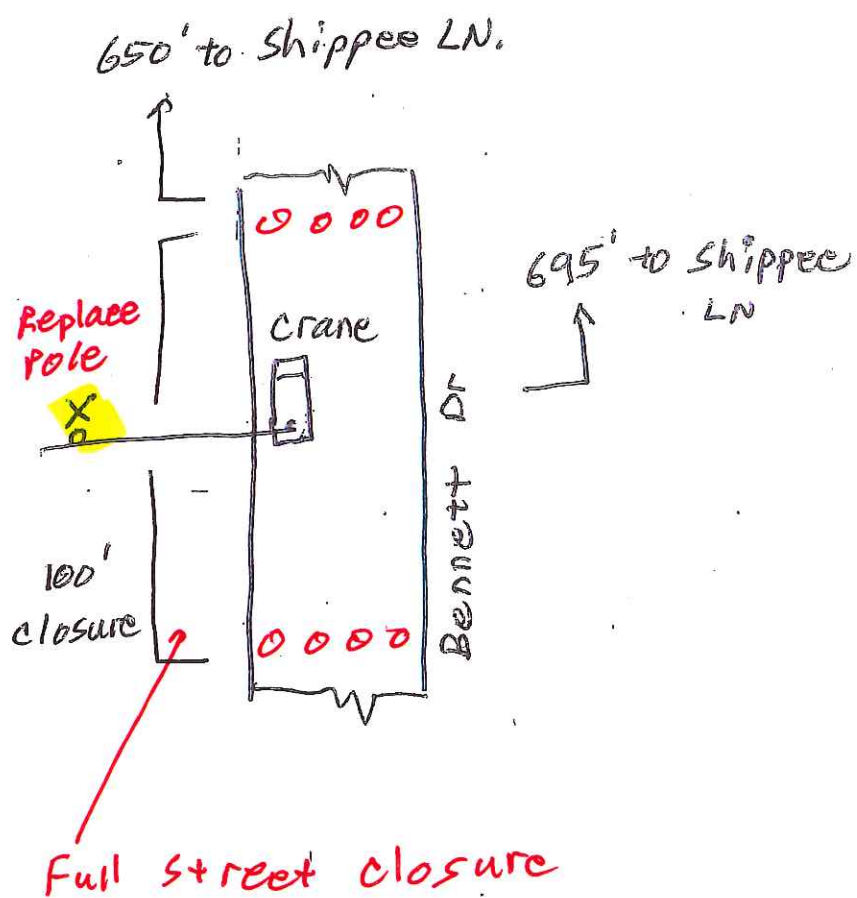 650' to Shippee LN.
695' to Shippee
LN
Replace
Pole
Crane
X
Bennett Dr
100'
closure
Full street closure